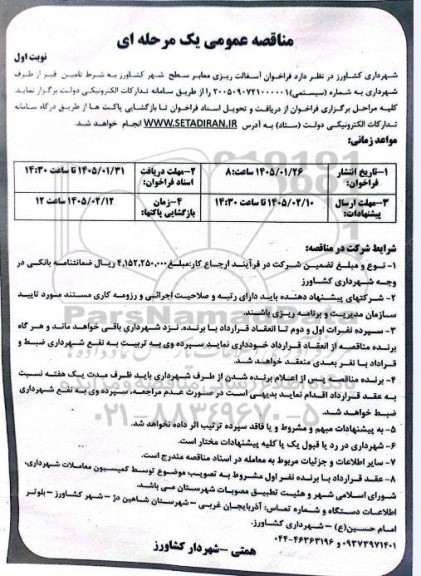 مناقصه عمومی یک مرحله ای
نوبت اول
شهرداری کشاورز در نظر دارد فراخوان آسفالت ریزی معابر سطح شهر کشاورز به شرط تامین قیر از طرف
شهرداری به شماره (سیستمی) ۲۰۰۵۰۹۰۷۲۱۰۰۰۰۰۱ را از طریق سامانه تدارکات الکترونیکی دولت برگزار نماید.
کلیه مراحل برگزاری فراخوان از دریافت و تحویل اسناد فراخوان تا بازگشایی پاکت ها از طریق درگاه سامانه
تدارکات الکترونیکی دولت (ستاد) به آدرس WWW.SETADIRAN.IR انجام خواهد شد.
مواعد زمانی:
۱-تاریخ انتشار فراخوان: ۱۴۰۵/۰۱/۲۶ ساعت:۸ ۲-مهلت دریافت اسناد فراخوان: ۱۴۰۵/۰۱/۳۱ تا ساعت ۱۴:۳۰
۳-مهلت ارسال پیشنهادات: ۱۴۰۵/۰۲/۱۰ تا ساعت ۱۴:۳۰ ۴-زمان بازگشایی پاکتها: ۱۴۰۵/۰۲/۱۲ ساعت ۱۲
شرایط شرکت در مناقصه:
۱- نوع و مبلغ تضمین شرکت در فرآیند ارجاع کار:مبلغ ۴,۱۵۲,۲۵۰,۰۰۰ ریال ضمانتنامه بانکی در
وجه شهرداری کشاورز
۲- شرکتهای پیشنهاد دهنده باید دارای رتبه و صلاحیت اجرائی و رزومه کاری مستند مورد تایید
سازمان مدیریت و برنامه ریزی باشند.
۳- سپرده نفرات اول و دوم تا انعقاد قرارداد با برنده، نزد شهرداری باقی خواهد ماند و هر گاه
برنده مناقصه از انعقاد قرارداد خودداری نماید سپرده وی به تربیت به نفع شهرداری ضبط و
قراداد با نفر بعدی منعقد خواهد شد.
۴- برنده مناقصه پس از اعلام برنده شدن از طرف شهرداری باید ظرف مدت یک هفته نسبت
به عقد قرارداد اقدام نماید بدیهی است در صورت عدم مراجعه، سپرده وی به نفع شهرداری
ضبط خواهد شد.
۵- به پیشنهادات مبهم و مشروط و یا فاقد سپرده ترتیب اثر داده نخواهد شد.
۶- شهرداری در رد یا قبول یک یا کلیه پیشنهادات مختار است.
۷- سایر اطلاعات و جزئیات مربوط به معامله در اسناد مناقصه مندرج است.
۸- عقد قرارداد با برنده نفر اول مشروط به تصویب موضوع توسط کمیسیون معاملات شهرداری،
شورای اسلامی شهر و هئیت تطبیق مصوبات شهرستان می باشد.
اطلاعات دستگاه و شماره تماس: آذربایجان غربی - شهرستان شاهین دژ - شهر کشاورز - بلوار
امام حسین(ع) - شهرداری کشاورز.
۰۹۳۷۳۹۷۱۴۰۱ و ۰۴۴-۴۶۳۶۳۱۹۶
همتی - شهردار کشاورز
ParsNamadData
۰۲۱-۸۸۳۴۹۶۷۰-۵